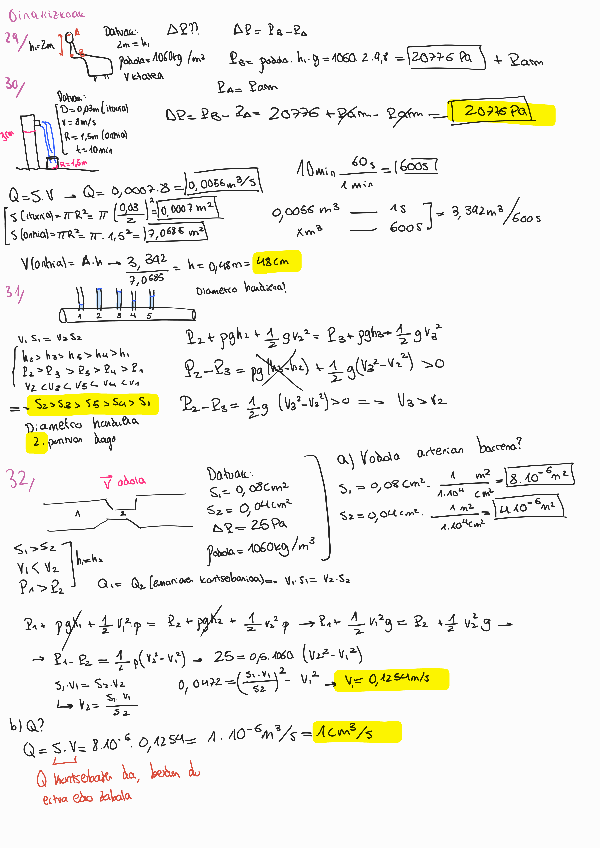 Dinamikoak
29/ h₁=2m A B
Datuak: ΔP?? ΔP = P_B - P_A
2m = h₁
ρodola = 1060kg/m³
P_B = ρodola · h₁ · g = 1060 · 2 · 9,8 = 20776 Pa + Patm
P_A = Patm
ΔP = P_B - P_A = 20776 + Patm - Patm = 20776 Pa
30/ Datuak:
D = 0,03m (iturria)
V = 8m/s
R = 1,5m (ontia)
t = 10min
R = 1,5m
Q = S.V → Q = 0,0007.8 = 0,0056 m³/s
10min 60s / 1min = 600s
S (iturria) = πR² = π (0,03/2)² = 0,0007 m²
S (ontia) = πR² = π · 1,5² = 7,0686 m²
0,0056 m³ — 1s
xm³ — 600s = 3,392m³/600s
V(ontia) = A.h → 3,392 / 7,0685 = h = 0,48m = 48cm
31/ Diametro handiena?
1 2 3 4 5
V₁ S₁ = V₂ S₂
h₂ > h₃ > h₅ > h₄ > h₁
P₂ > P₃ > P₅ > P₄ > P₁
V₂ < V₃ < V₅ < V₄ < V₁
=> S₂ > S₃ > S₅ > S₄ > S₁
Diametro handiena
2. puntuan dago
P₂ + ρgh₂ + 1/2 ρV₂² = P₃ + ρgh₃ + 1/2 ρV₃²
P₂ - P₃ = ρg(h₃-h₂) + 1/2 ρ(V₃² - V₂²) > 0
P₂ - P₃ = 1/2 ρ (V₃² - V₂²) > 0 => V₃ > V₂
32/ V odola
1 2
Datuak:
S₁ = 0,08cm²
S₂ = 0,04cm²
ΔP = 25Pa
ρodola = 1060kg/m³
a) Vodola arterian barrena?
S₁ = 0,08cm² · 1 m² / 1.10⁴ cm² = 8.10⁻⁶ m²
S₂ = 0,04cm² · 1 m² / 1.10⁴cm² = 4.10⁻⁶ m²
S₁ > S₂
V₁ < V₂
P₁ > P₂
h₁ = h₂
Q₁ = Q₂ (emariaren kontserbazioa) => V₁.S₁ = V₂.S₂
P₁ + ρgh₁ + 1/2 V₁² ρ = P₂ + ρgh₂ + 1/2 V₂² ρ → P₁ + 1/2 V₁² ρ = P₂ + 1/2 V₂² ρ →
→ P₁ - P₂ = 1/2 ρ(V₂² - V₁²) → 25 = 0,5.1060 (V₂² - V₁²)
S₁.V₁ = S₂.V₂
↳ V₂ = S₁.V₁ / S₂
0,0472 = (S₁.V₁ / S₂)² - V₁² → V₁ = 0,1254m/s
b) Q?
Q = S.V = 8.10⁻⁶ . 0,1254 = 1.10⁻⁶ m³/s = 1cm³/s
Q kontserbatzen da, berdin du
estua edo zabala